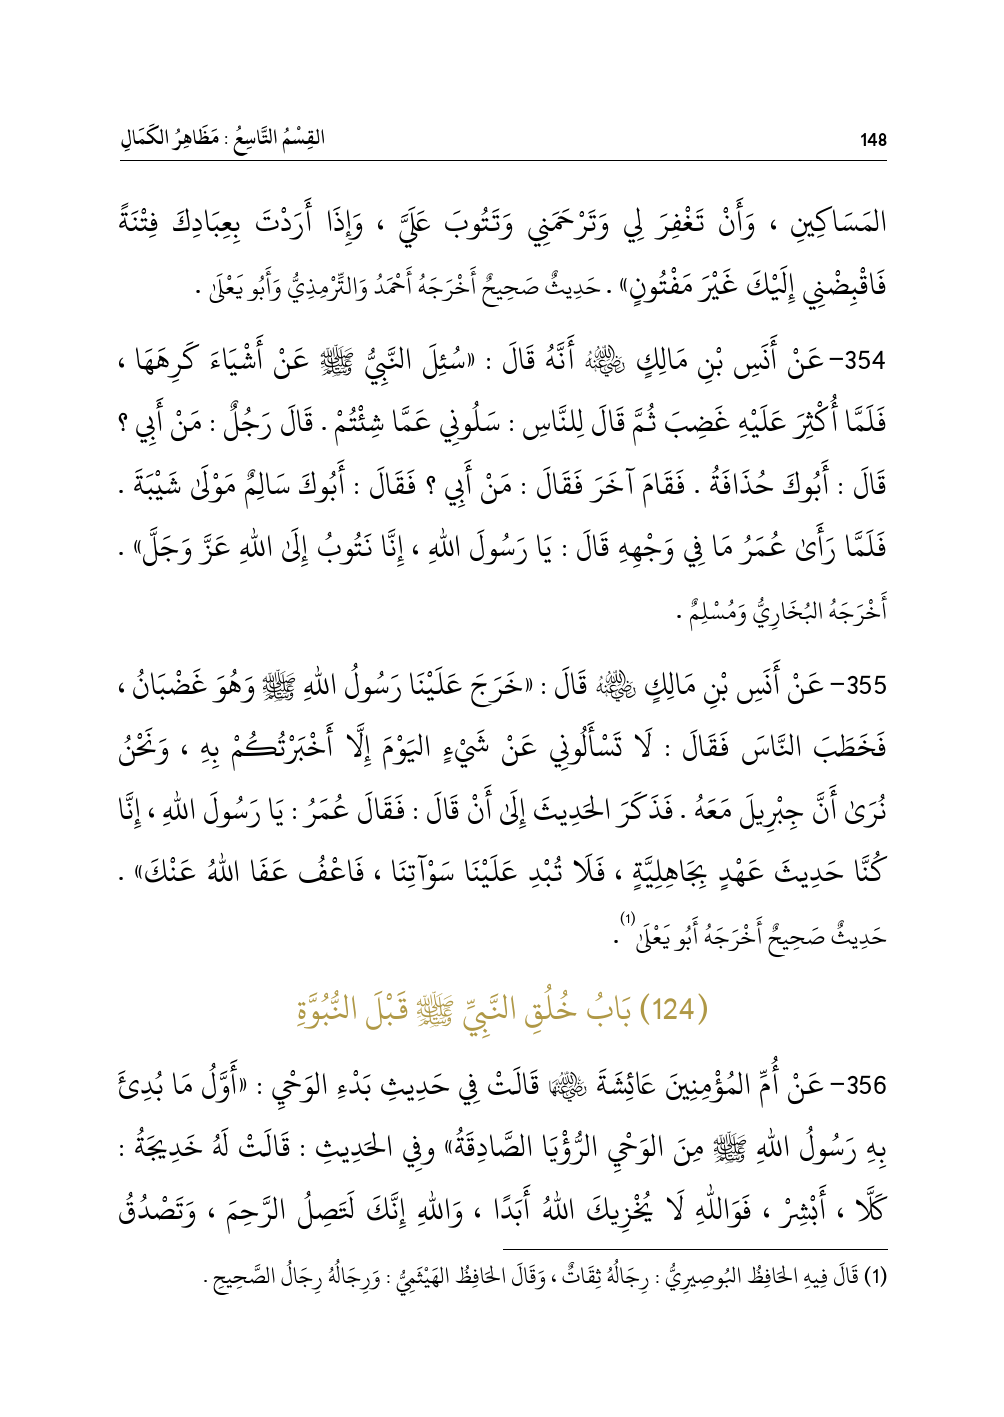 148 القِسْمُ التَّاسِعُ : مَظَاهِرُ الكَمَالِ
المَسَاكِينِ ، وَأَنْ تَغْفِرَ لِي وَتَرْحَمَنِي وَتَتُوبَ عَلَيَّ ، وَإِذَا أَرَدْتَ بِعِبَادِكَ فِتْنَةً
فَاقْبِضْنِي إِلَيْكَ غَيْرَ مَفْتُونٍ» . حَدِيثٌ صَحِيحٌ أَخْرَجَهُ أَحْمَدُ وَالتِّرْمِذِيُّ وَأَبُو يَعْلَىٰ .
354- عَنْ أَنَسِ بْنِ مَالِكٍ رضي الله عنه أَنَّهُ قَالَ : «سُئِلَ النَّبِيُّ ﷺ عَنْ أَشْيَاءَ كَرِهَهَا ،
فَلَمَّا أُكْثِرَ عَلَيْهِ غَضِبَ ثُمَّ قَالَ لِلنَّاسِ : سَلُونِي عَمَّا شِئْتُمْ . قَالَ رَجُلٌ : مَنْ أَبِي ؟
قَالَ : أَبُوكَ حُذَافَةُ . فَقَامَ آخَرَ فَقَالَ : مَنْ أَبِي ؟ فَقَالَ : أَبُوكَ سَالِمٌ مَوْلَىٰ شَيْبَةَ .
فَلَمَّا رَأَىٰ عُمَرُ مَا فِي وَجْهِهِ قَالَ : يَا رَسُولَ اللهِ ، إِنَّا نَتُوبُ إِلَىٰ اللهِ عَزَّ وَجَلَّ» .
أَخْرَجَهُ البُخَارِيُّ وَمُسْلِمٌ .
355- عَنْ أَنَسِ بْنِ مَالِكٍ رضي الله عنه قَالَ : «خَرَجَ عَلَيْنَا رَسُولُ اللهِ ﷺ وَهُوَ غَضْبَانُ ،
فَخَطَبَ النَّاسَ فَقَالَ : لَا تَسْأَلُونِي عَنْ شَيْءٍ اليَوْمَ إِلَّا أَخْبَرْتُكُمْ بِهِ ، وَنَحْنُ
نُرَىٰ أَنَّ جِبْرِيلَ مَعَهُ . فَذَكَرَ الحَدِيثَ إِلَىٰ أَنْ قَالَ : فَقَالَ عُمَرُ : يَا رَسُولَ اللهِ ، إِنَّا
كُنَّا حَدِيثَ عَهْدٍ بِجَاهِلِيَّةٍ ، فَلَا تُبْدِ عَلَيْنَا سَوْآتِنَا ، فَاعْفُ عَفَا اللهُ عَنْكَ» .
حَدِيثٌ صَحِيحٌ أَخْرَجَهُ أَبُو يَعْلَىٰ(1) .
(124) بَابُ خُلُقِ النَّبِيِّ ﷺ قَبْلَ النُّبُوَّةِ
356- عَنْ أُمِّ المُؤْمِنِينَ عَائِشَةَ رضي الله عنها قَالَتْ فِي حَدِيثِ بَدْءِ الوَحْيِ : «أَوَّلُ مَا بُدِئَ
بِهِ رَسُولُ اللهِ ﷺ مِنَ الوَحْيِ الرُّؤْيَا الصَّادِقَةُ» وفِي الحَدِيثِ : قَالَتْ لَهُ خَدِيجَةُ :
كَلَّا ، أَبْشِرْ ، فَوَاللّٰهِ لَا يُخْزِيكَ اللهُ أَبَدًا ، وَاللهِ إِنَّكَ لَتَصِلُ الرَّحِمَ ، وَتَصْدُقُ
(1) قَالَ فِيهِ الحَافِظُ البُوصِيرِيُّ : رِجَالُهُ ثِقَاتٌ ، وَقَالَ الحَافِظُ الهَيْثَمِيُّ : وَرِجَالُهُ رِجَالُ الصَّحِيحِ .